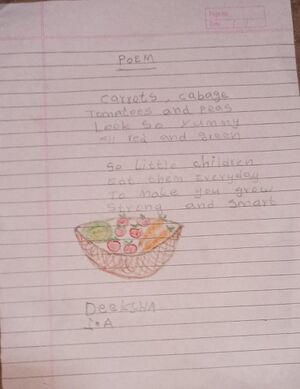 Page No.
Date
POEM
Carrots, cabage
Tomatoes and Peas
Look So Yummy
All red and green
So Little children
Eat them Everyday
To make you grow
Strong and Smart
Deeksha
I-A